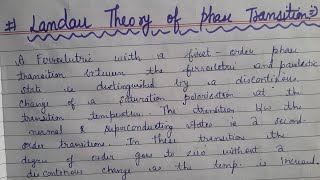 # Landau Theory of Phase Transition:-
A Ferroelectric with a first-order phase
transition between the ferroelectric and paraelectric
state is distinguished by a discontinuous
change of a saturation polarization at the
transition temperature. The transition b/w the
normal & superconducting states is a second-
order transitions. In these transition the
degree of order goes to zero without a
discontinous change as the temp. is increased.